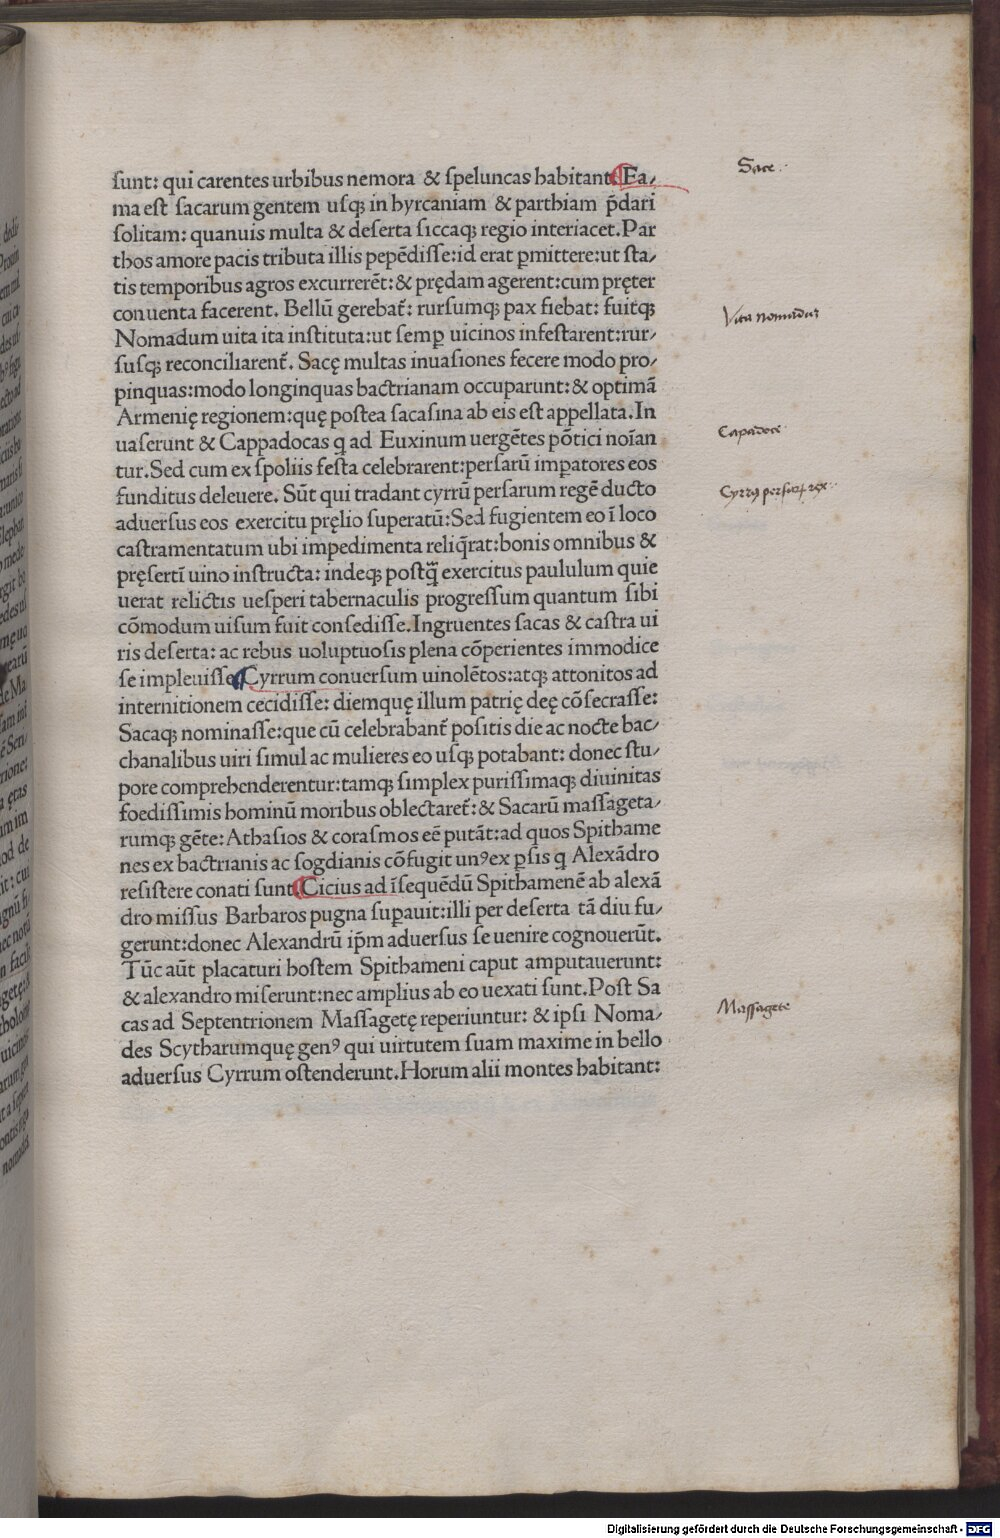 ſunt: qui carentes urbibus nemora & ſpeluncas habitant. Fa/
ma est ſacarum gentem uſq; in hyrcaniam & parthiam p̄dari
ſolitam: quanuis multa & deſerta ſiccaq; regio interiacet. Par
thos amore pacis tributa illis pepēdiſſe: id erat ꝑmittere: ut ſta/
tis temporibus agros excurrerēt: & prędam agerent: cum pręter
conuenta facerent. Bellū gerebat̄: rurſumq; pax fiebat: fuitq;
Nomadum uita ita inſtituta: ut ſemꝑ uicinos infeſtarent: rur/
ſuſq; reconciliarent̄. Sacę multas inuaſiones fecere modo pro/
pinquas: modo longinquas bactrianam occuparunt: & optimā
Armenię regionem: quę poſtea ſacaſina ab eis eſt appellata. In
uaſerunt & Cappadocas q ad Euxinum uergētes pōtici noīan
tur. Sed cum ex ſpoliis feſta celebrarent: perſarū imꝑatores eos
funditus deleuere. Sūt qui tradant cyrrū perſarum regē ducto
aduerſus eos exercitu pręlio ſuperatū: Sed fugientem eo ī loco
caſtramentatum ubi impedimenta reliq̄rat: bonis omnibus &
pręſertī uino inſtructa: indeq; poſtq̄ exercitus paululum quie
uerat relictis ueſperi tabernaculis progreſſum quantum ſibi
cōmodum uiſum fuit conſediſſe. Ingruentes ſacas & caſtra ui
ris deſerta: ac rebus uoluptuoſis plena cōperientes immodice
ſe impleuiſſe. Cyrrum conuerſum uinolētos: atq; attonitos ad
internitionem cecidiſſe: diemquę illum patrię deę cōſecraſſe:
Sacaq; nominaſſe: que cū celebrabant̄ poſitis die ac nocte bac/
chanalibus uiri ſimul ac mulieres eo uſq; potabant: donec ſtu/
pore comprehenderentur: tamq; ſimplex puriſſimaq; diuinitas
foediſſimis hominū moribus oblectaret̄: & Sacarū maſſageta/
rumq; gēte: Athaſios & coraſmos eē putāt: ad quos Spithame
nes ex bactrianis ac ſogdianis cōfugit unꝰ ex ꝑſis q Alexādro
reſiſtere conati ſunt. Cicius ad īſequēdū Spithamenē ab alexā
dro miſſus Barbaros pugna ſuꝑauit: illi per deſerta tā diu fu/
gerunt: donec Alexandrū ip̄m aduerſus ſe uenire cognouerūt.
Tūc aūt placaturi hoſtem Spithameni caput amputauerunt:
& alexandro miſerunt: nec amplius ab eo uexati ſunt. Poſt Sa
cas ad Septentrionem Maſſagetę reperiuntur: & ipſi Noma/
des Scytharumquę genꝰ qui uirtutem ſuam maxime in bello
aduerſus Cyrrum oſtenderunt. Horum alii montes habitant:
Sace
Vita nomadum
Capadoce
Cyrrꝰ perſarꝝ rex
Maſſagete
Digitalisierung gefördert durch die Deutsche Forschungsgemeinschaft - DFG